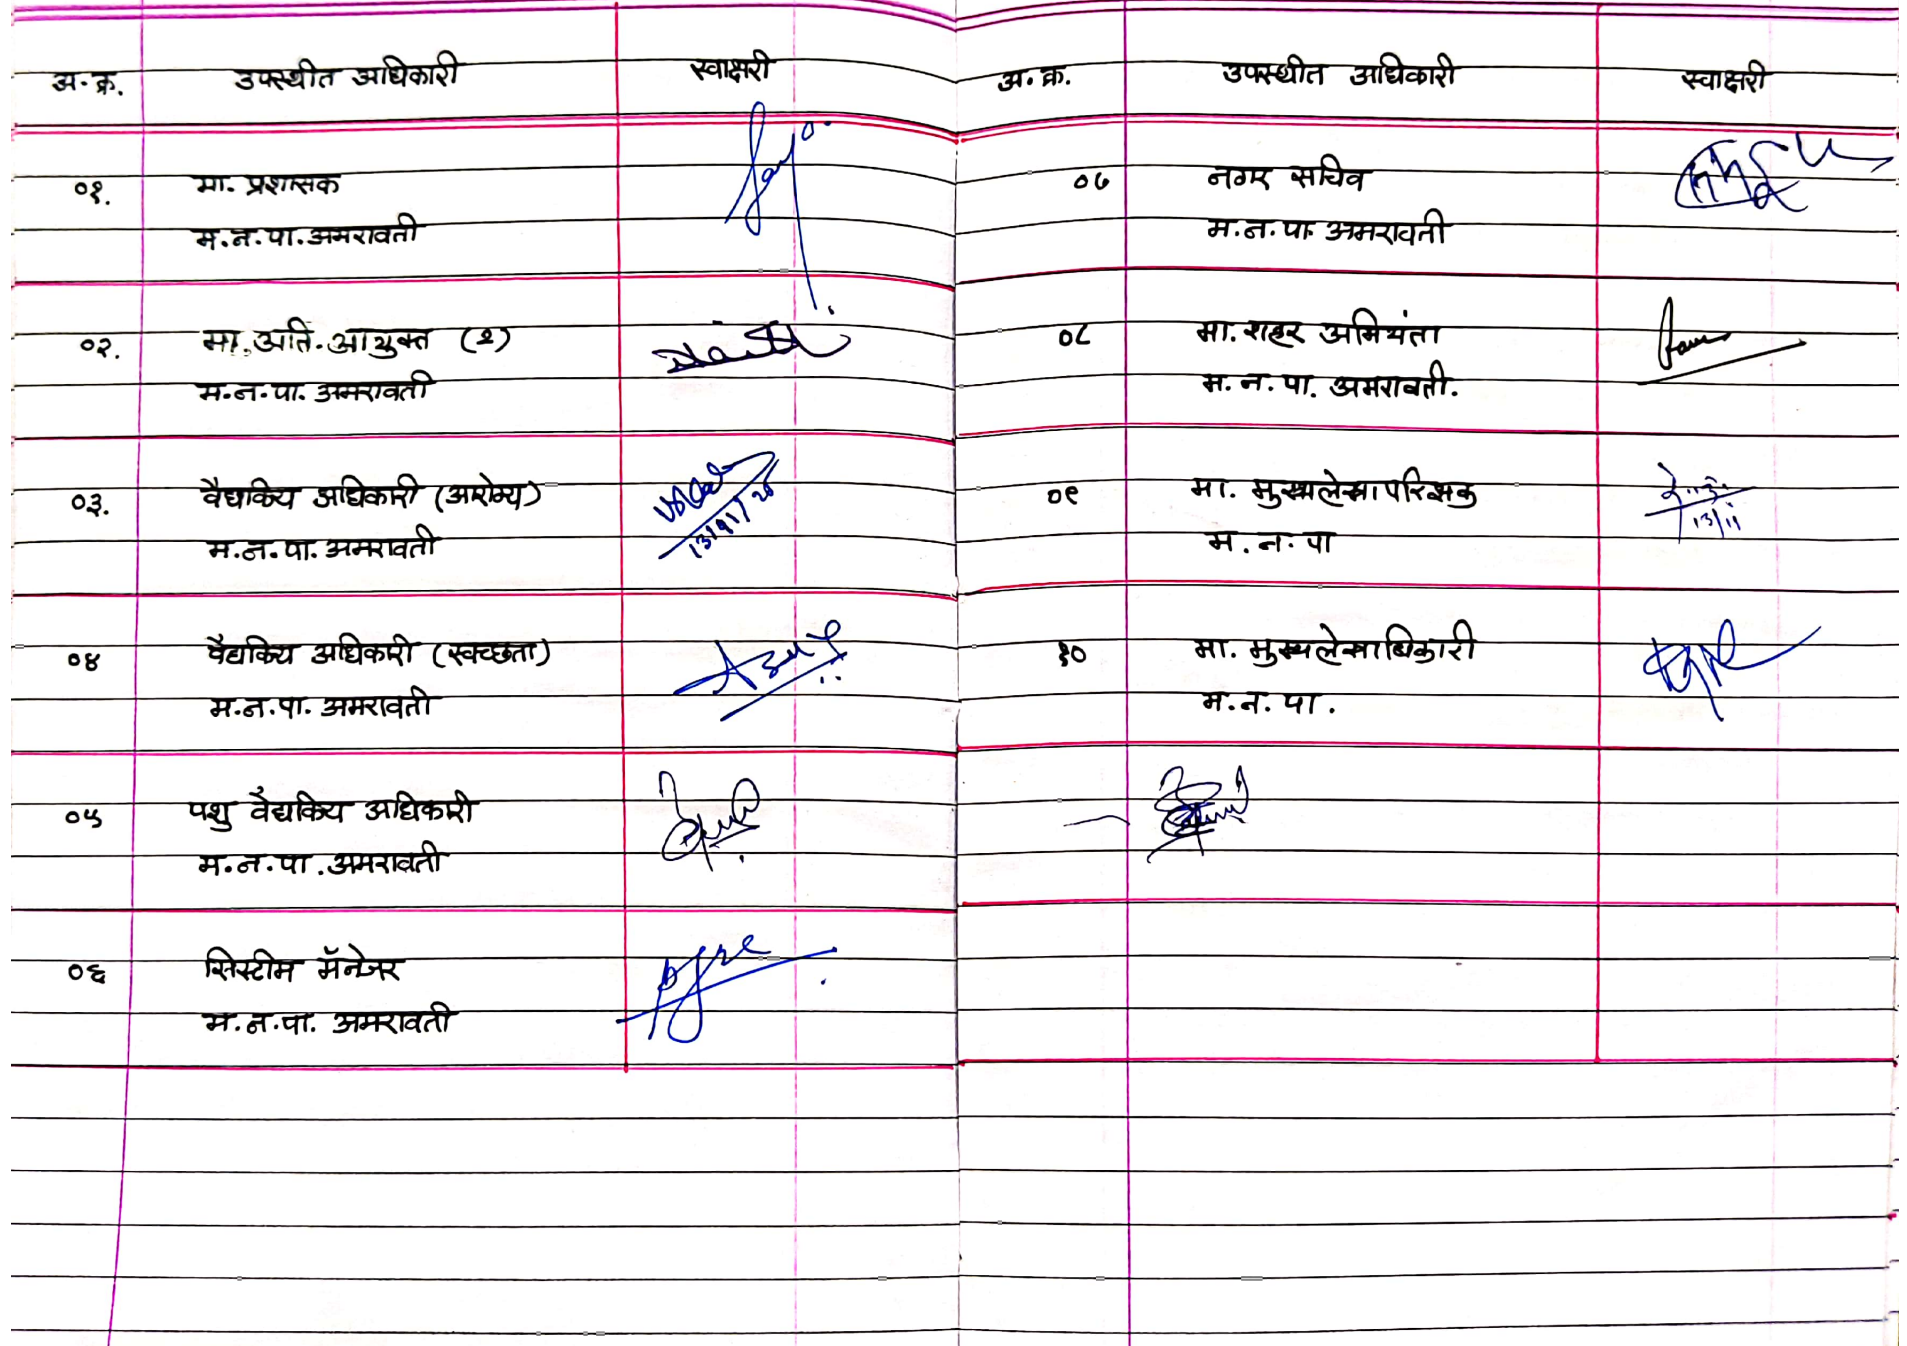 अ.क्र. उपस्थीत अधिकारी स्वाक्षरी
०१. मा. प्रशासक
म.न.पा.अमरावती
०२. मा. अति. आयुक्त (१)
म.न.पा. अमरावती
०३. वैद्यकिय अधिकारी (आरोग्य)
म.न.पा. अमरावती
०४ वैद्यकिय अधिकारी (स्वच्छता)
म.न.पा. अमरावती
०५ पशु वैद्यकिय अधिकारी
म.न.पा. अमरावती
०६ सिस्टीम मॅनेजर
म.न.पा. अमरावती
अ.क्र. उपस्थीत अधिकारी स्वाक्षरी
०७ नगर सचिव
म.न.पा. अमरावती
०८ मा. शहर अभियंता
म.न.पा. अमरावती.
०९ मा. मुख्यलेखापरिक्षक
13/11
म.न.पा
१० मा. मुख्यलेखाधिकारी
म.न.पा.